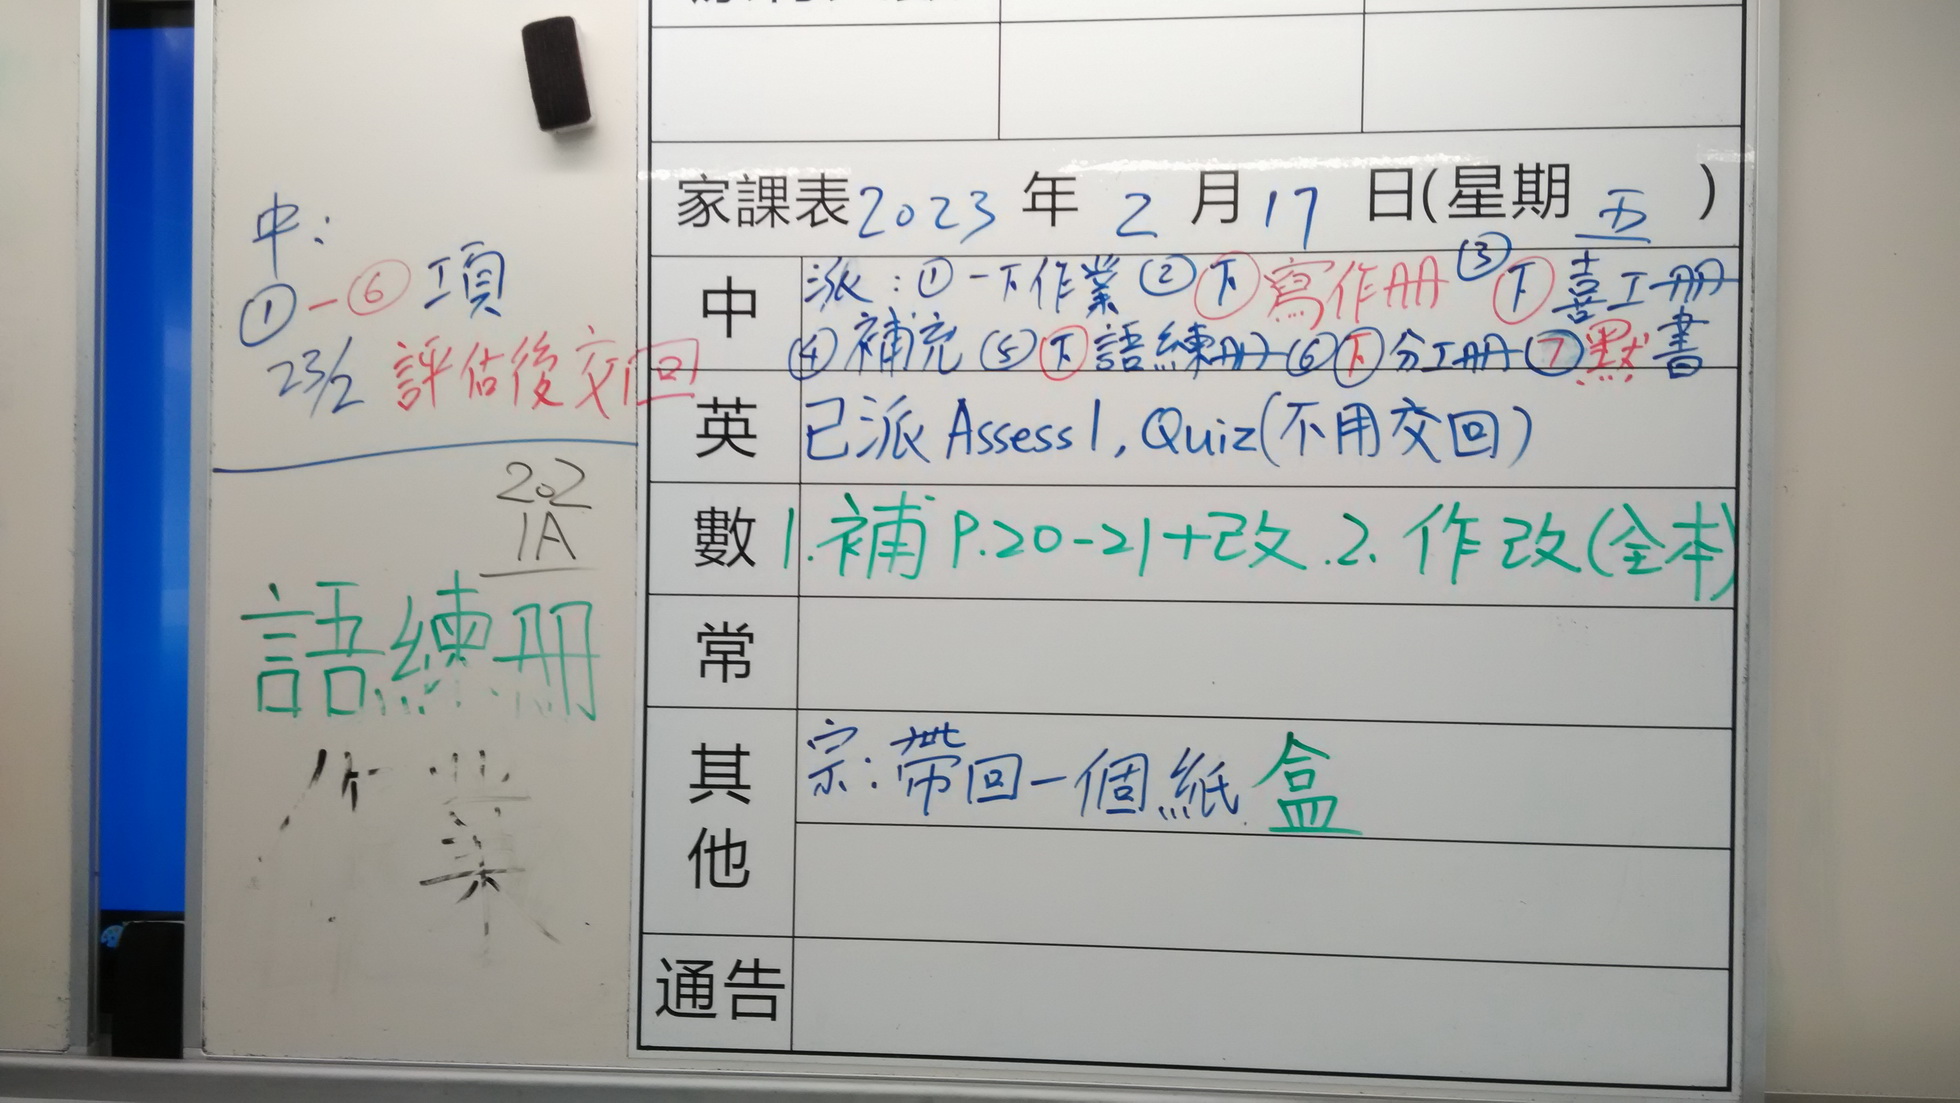 中：
①-⑥項
23/2 評估後交回
202
1A
語練冊
作業
家課表2023年2月17日(星期五)
中
派：①一下作業②下寫作冊③下喜工冊
④補充⑤下語練冊⑥下分工冊⑦默書
英
已派 Assess 1, Quiz(不用交回)
數
1.補 P.20-21+改.2.作改(全本)
常
其他
宗：帶回一個紙盒
通告